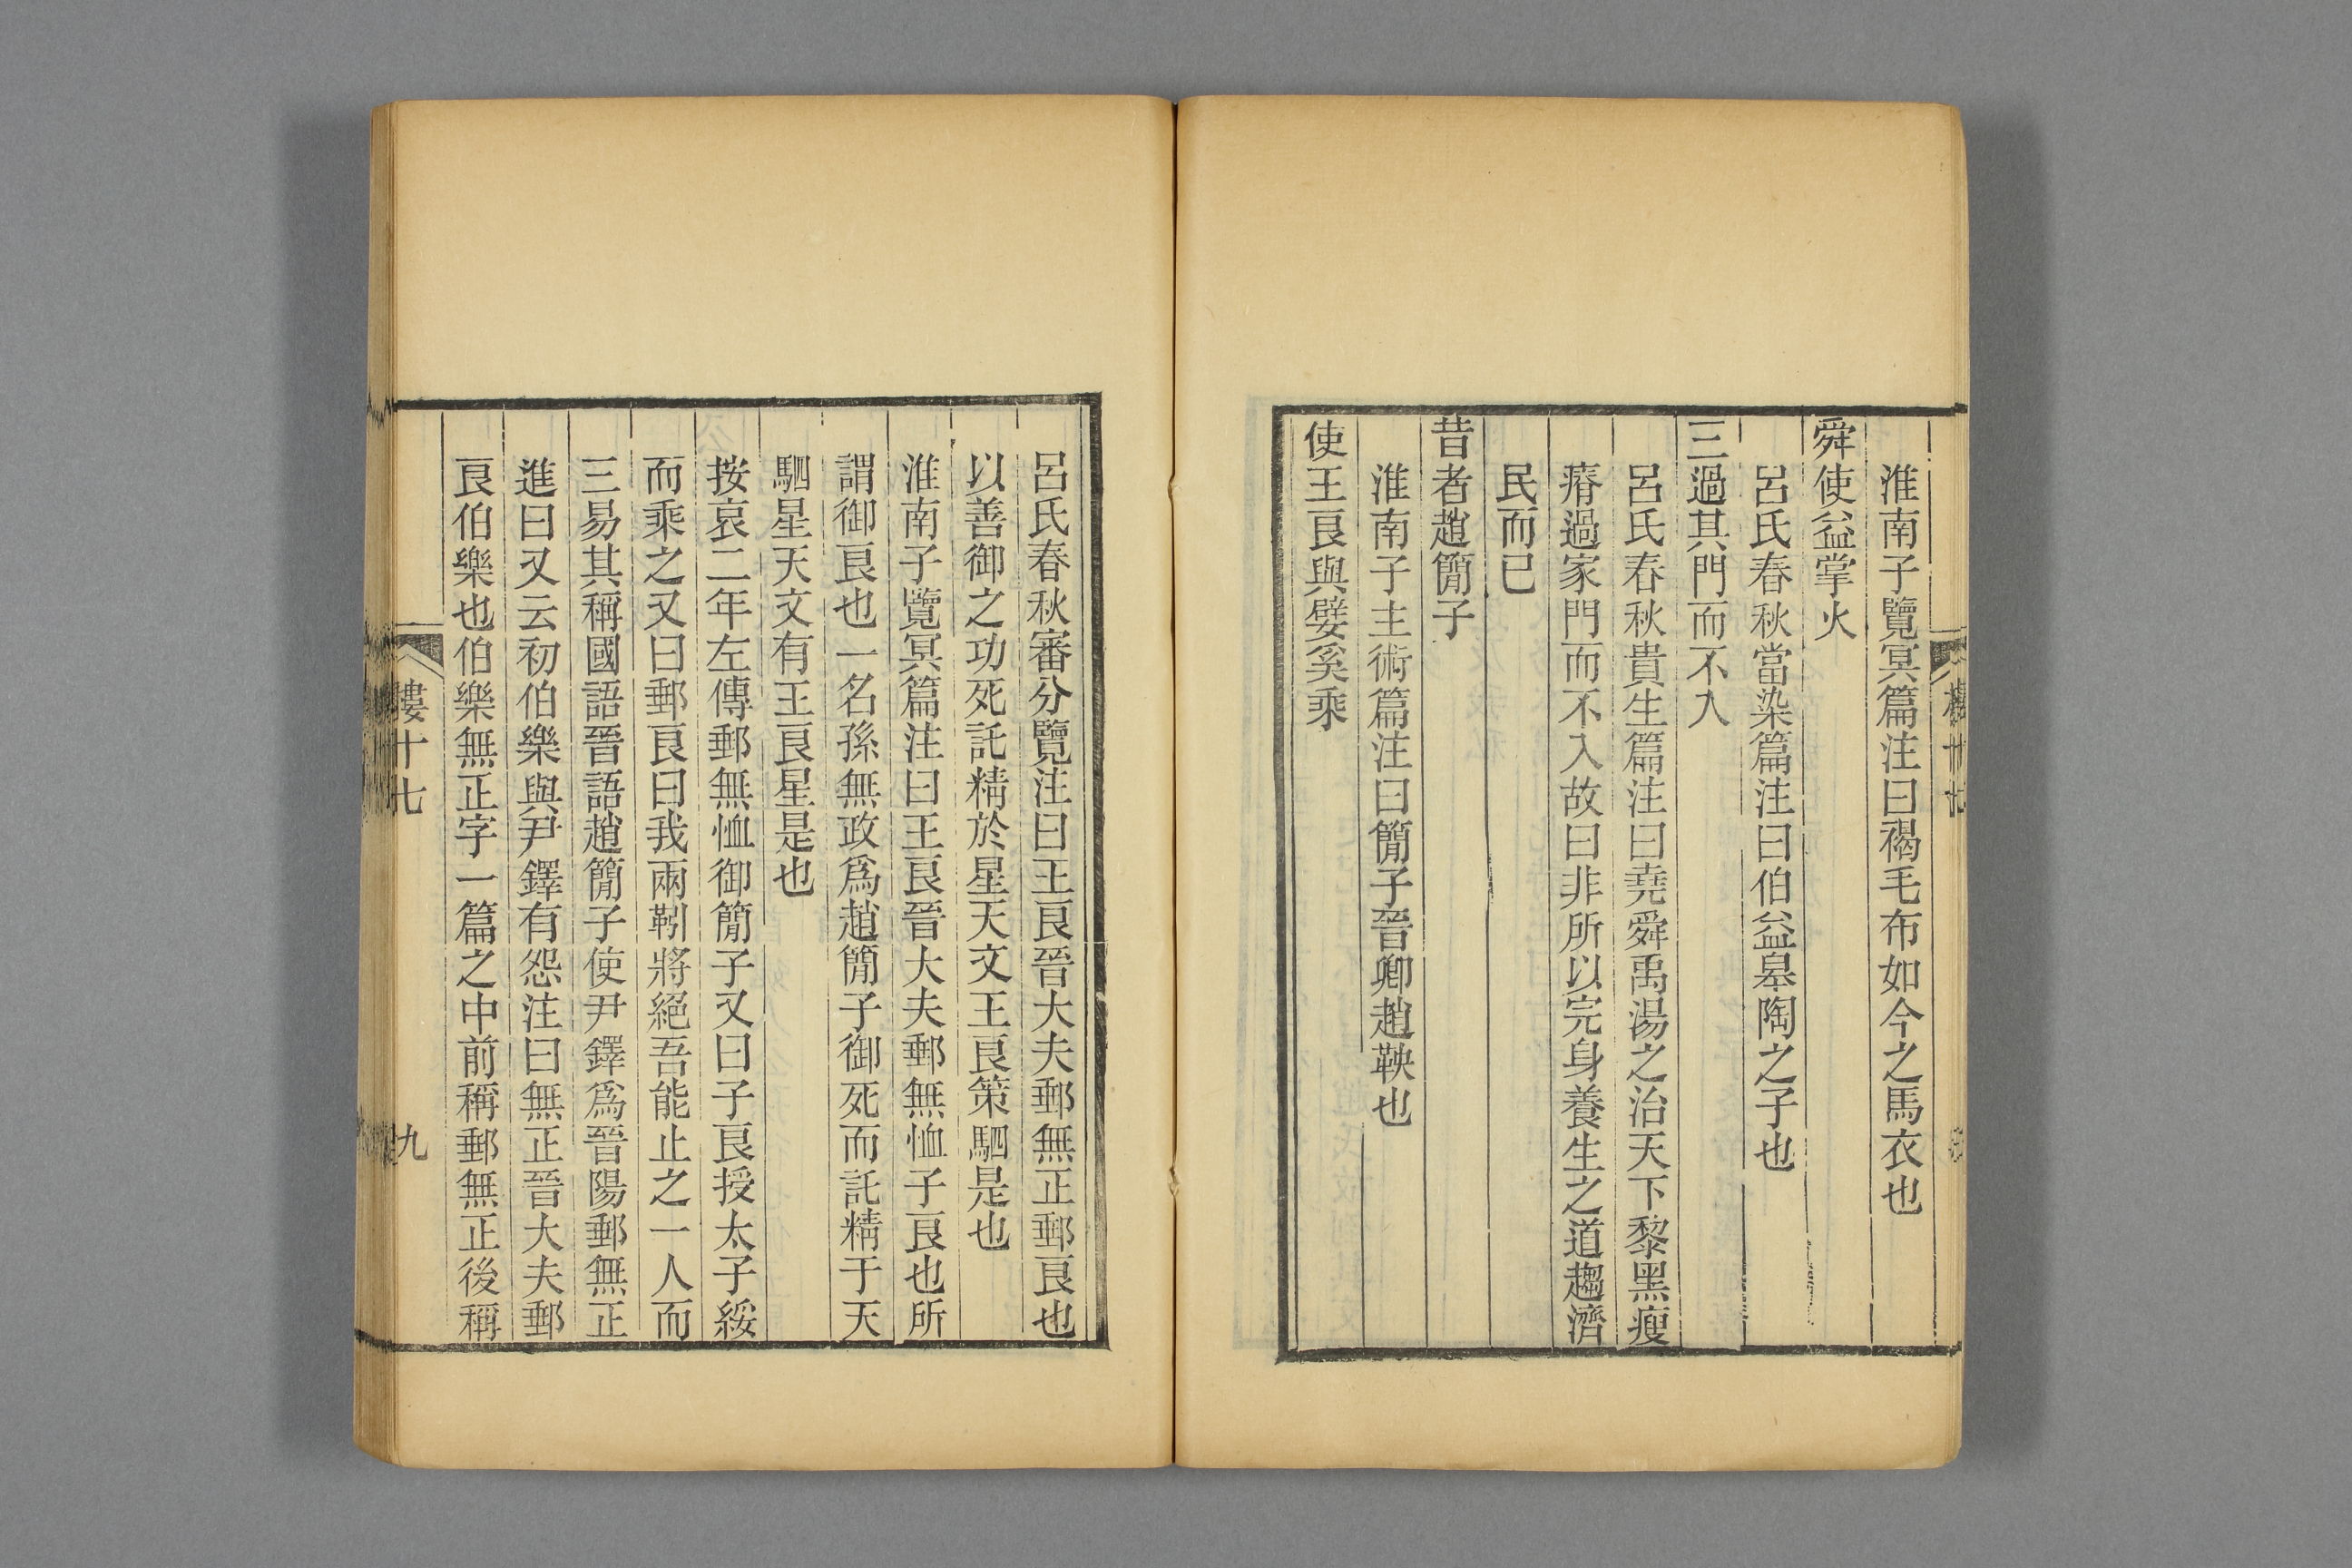 淮南子覽冥篇注曰褐毛布如今之馬衣也
舜使益掌火
呂氏春秋當染篇注曰伯益皋陶之子也
三過其門而不入
呂氏春秋貴生篇注曰堯舜禹湯之治天下黎黑瘦
瘠過家門而不入故曰非所以完身養生之道趨濟
民而已
昔者趙簡子
淮南子主術篇注曰簡子晉卿趙鞅也
使王良與嬖奚乘
呂氏春秋審分覽注曰王良晉大夫郵無正郵良也
以善御之功死託精於星天文王良策駟是也
淮南子覽冥篇注曰王良晉大夫郵無恤子良也所
謂御良也一名孫無政爲趙簡子御死而託精于天
駟星天文有王良星是也
按哀二年左傳郵無恤御簡子又曰子良授太子綏
而乘之又曰郵良曰我兩靷將絕吾能止之一人而
三易其稱國語晉語趙簡子使尹鐸爲晉陽郵無正
進曰又云初伯樂與尹鐸有怨注曰無正晉大夫郵
良伯樂也伯樂無正字一篇之中前稱郵無正後稱
摟十七
九